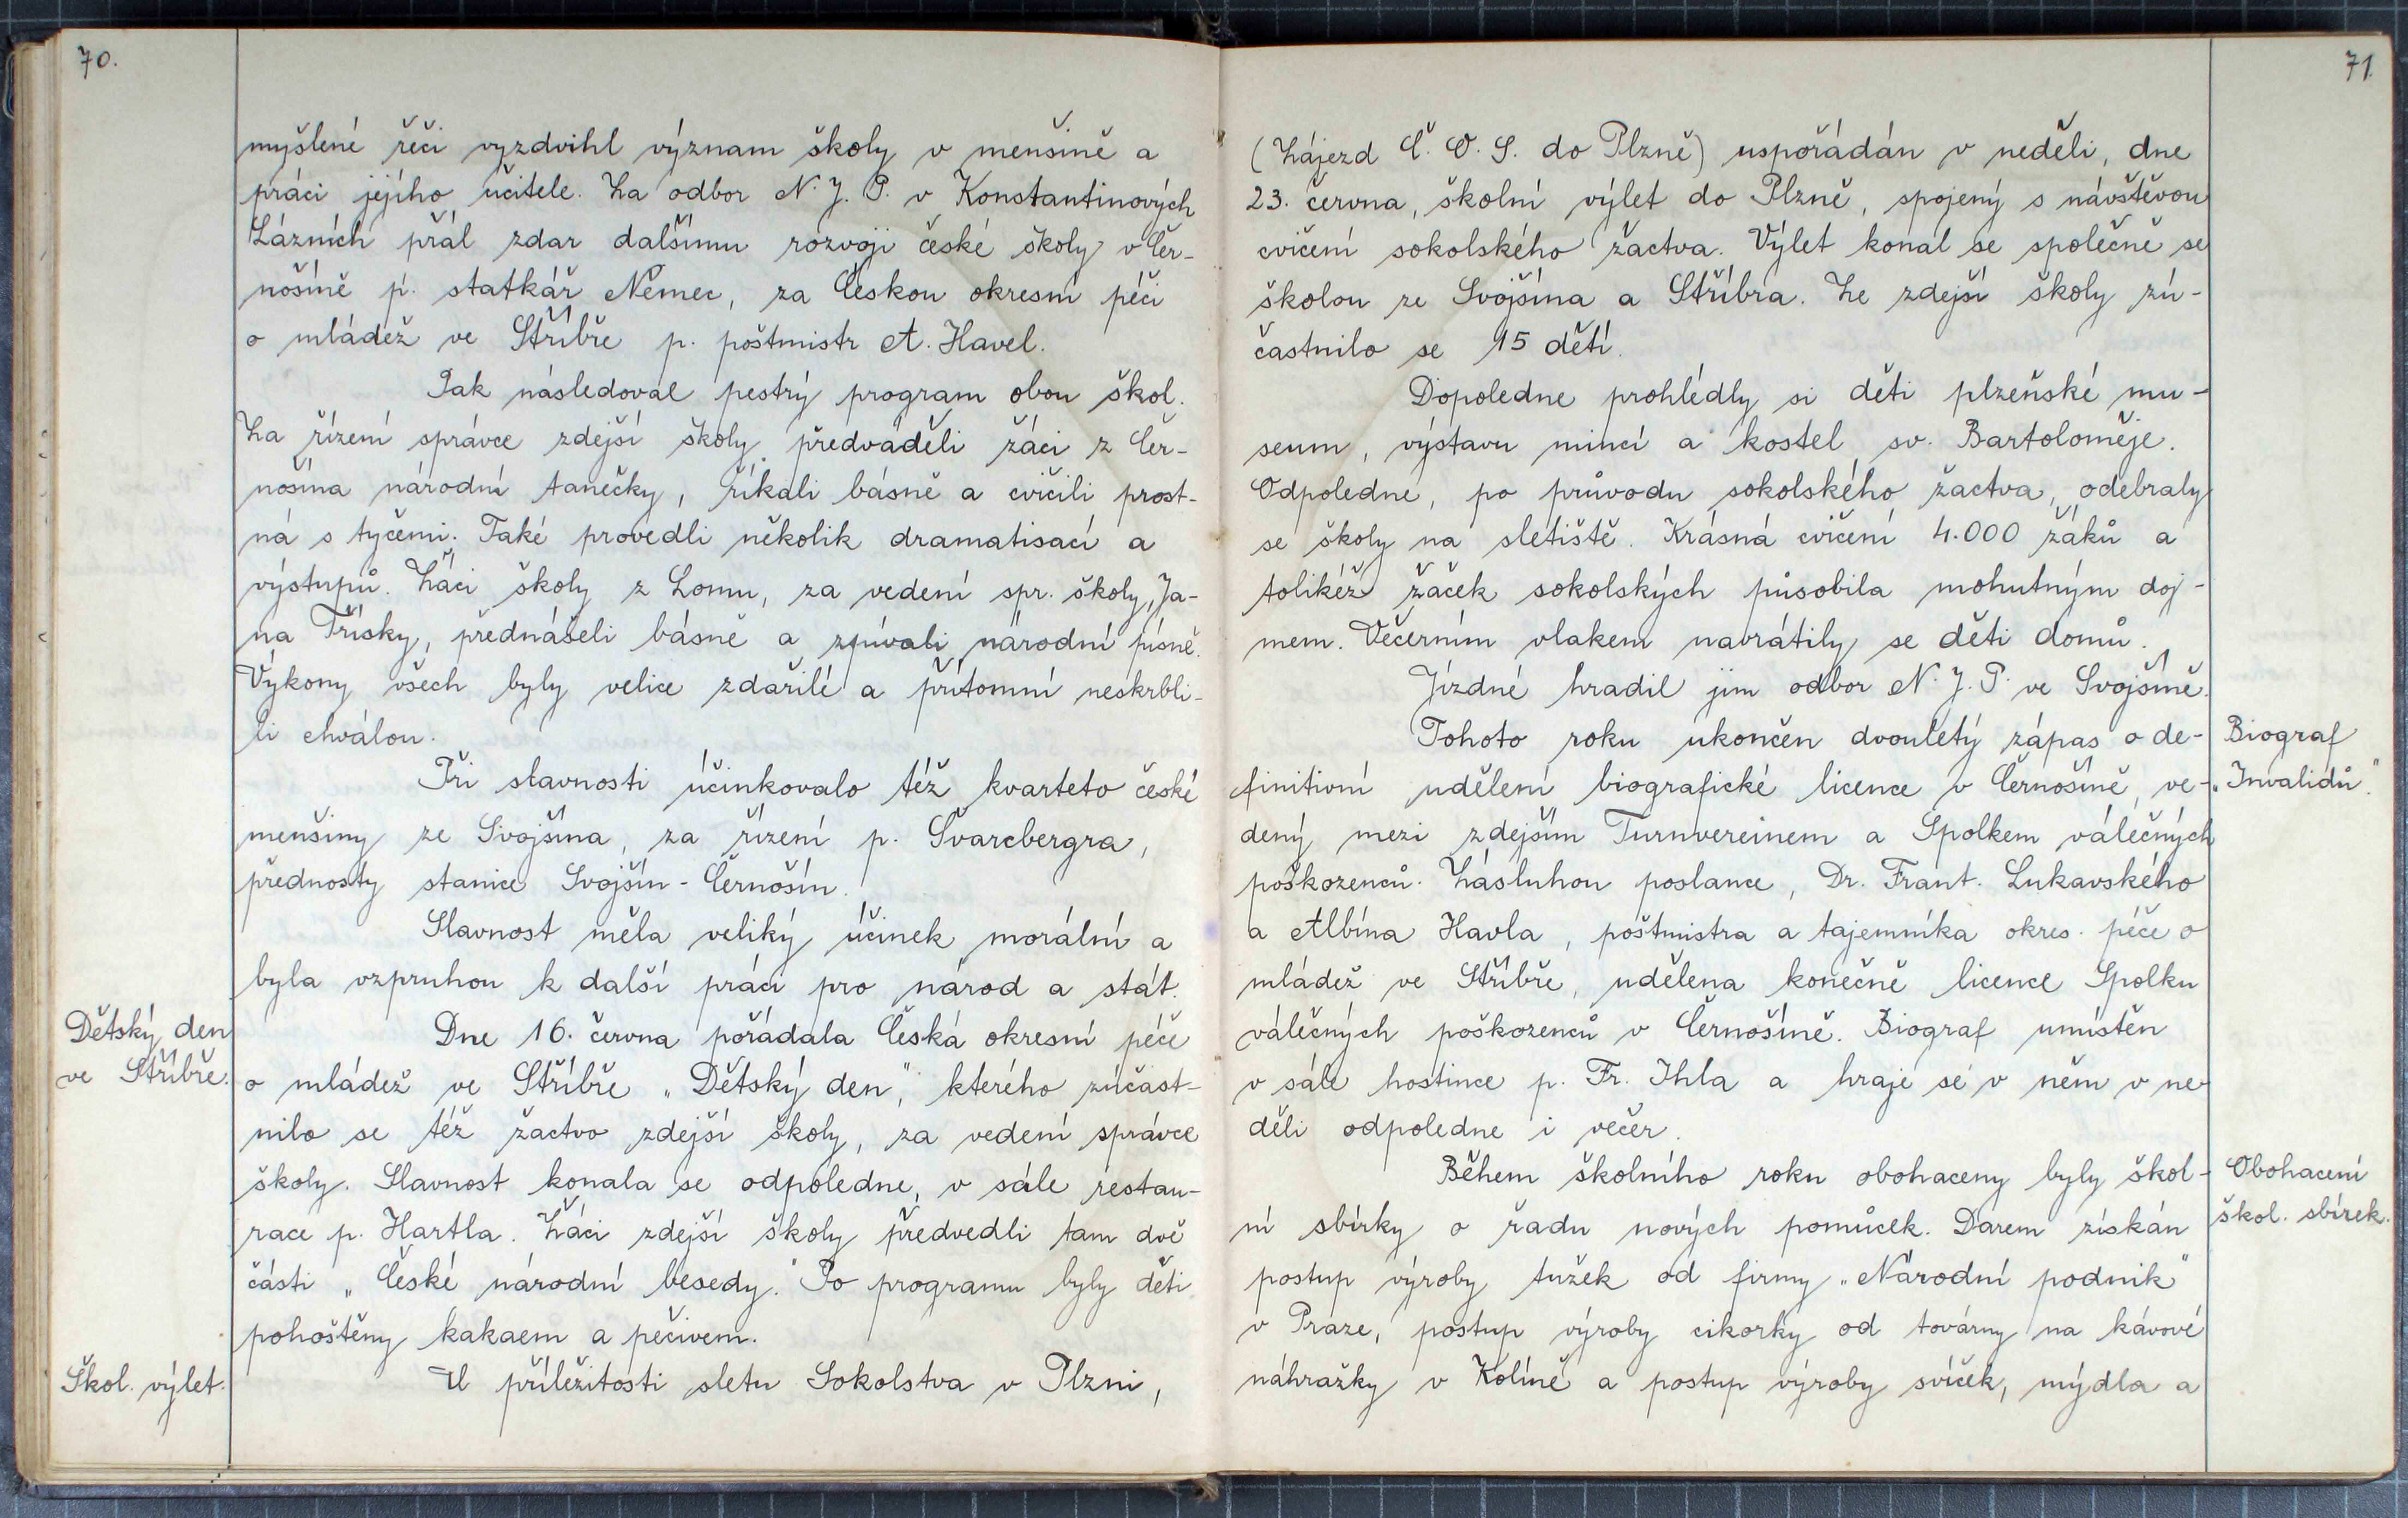 70.
myšlené řeči vyzdvihl význam školy v menšině a
práci jejího učitele. Za odbor N. J. P. v Konstantinových
Lázních přál zdar dalšímu rozvoji české školy v Čer-
nošíně p. statkář Němec, za Českou okresní péči
o mládež ve Stříbře p. poštmistr A. Havel.
Pak následoval pestrý program obou škol.
Za řízení správce zdejší školy předváděli žáci z Čer-
nošína národní tanečky, říkali básně a cvičili prost-
ná s tyčemi. Také provedli několik dramatisací a
výstupů. Žáci školy z Lomu, za vedení spr. školy, Ja-
na Třísky, přednášeli básně a zpívali národní písně.
Výkony všech byly velice zdařilé a přítomní neskrbli-
li chválou.
Při slavnosti účinkovalo též kvarteto české
menšiny ze Svojšína, za řízení p. Švarcbergra,
přednosty stanice Svojšín - Černošín.
Slavnost měla veliký účinek morální a
byla vzpruhou k další práci pro národ a stát.
Dětský den
ve Stříbře.
Dne 16. června pořádala Česká okresní péče
o mládež ve Stříbře „Dětský den", kterého zúčast-
nilo se též žactvo zdejší školy, za vedení správce
školy. Slavnost konala se odpoledne, v sále restau-
race p. Hartla. Žáci zdejší školy předvedli tam dvě
části „České národní besedy." Po programu byly děti
pohoštěny kakaem a pečivem.
Škol. výlet.
U příležitosti sletu Sokolstva v Plzni,
71.
(Zájezd Č. O. S. do Plzně) uspořádán v neděli, dne
23. června, školní výlet do Plzně, spojený s návštěvou
cvičení sokolského žactva. Výlet konal se společně se
školou ze Svojšína a Stříbra. Ze zdejší školy zú-
častnilo se 15 dětí.
Dopoledne prohlédly si děti plzeňské mu-
seum, výstavu mincí a kostel sv. Bartoloměje.
Odpoledne, po průvodu sokolského žactva, odebraly
se školy na sletiště. Krásná cvičení 4.000 žáků a
tolikéž žaček sokolských působila mohutným doj-
mem. Večerním vlakem navrátily se děti domů.
Jízdné hradil jim odbor N. J. P. ve Svojšíně.
Biograf
„Invalidů".
Tohoto roku ukončen dvouletý zápas o de-
finitivní udělení biografické licence v Černošíně, ve-
dený mezi zdejším Turnvereinem a Spolkem válečných
poškozenců. Zásluhou poslance, Dr. Frant. Lukavského
a Albína Havla, poštmistra a tajemníka okres. péče o
mládež ve Stříbře, udělena konečně licence Spolku
válečných poškozenců v Černošíně. Biograf umístěn
v sále hostince p. Fr. Ihla a hraje se v něm v ne-
děli odpoledne i večer.
Obohacení
škol. sbírek.
Během školního roku obohaceny byly škol-
ní sbírky o řadu nových pomůcek. Darem získán
postup výroby tužek od firmy „Národní podnik"
v Praze, postup výroby cikorky od továrny na kávové
náhražky v Kolíně a postup výroby svíček, mýdla a